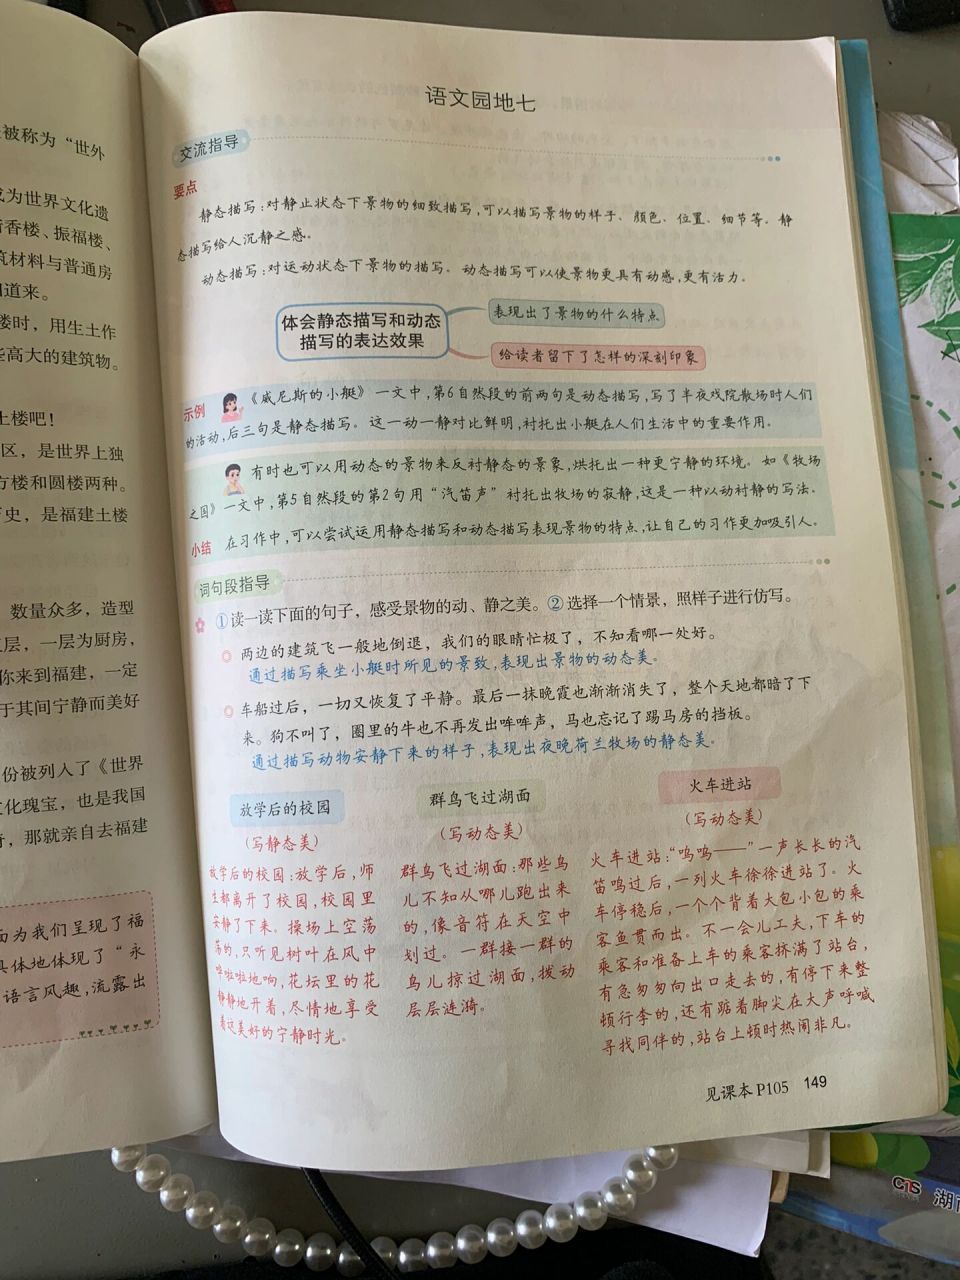 被称为“世外
成为世界文化遗
香楼、振福楼、
筑材料与普通房
道来。
楼时，用生土作
些高大的建筑物。
土楼吧！
区，是世界上独
方楼和圆楼两种。
史，是福建土楼
数量众多，造型
层，一层为厨房，
你来到福建，一定
于其间宁静而美好
份被列入了《世界
文化瑰宝，也是我国
，那就亲自去福建
面为我们呈现了福
具体地体现了“永
语言风趣，流露出
语文园地七
交流指导
要点
静态描写：对静止状态下景物的细致描写，可以描写景物的样子、颜色、位置、细节等。静
态描写给人沉静之感。
动态描写：对运动状态下景物的描写。动态描写可以使景物更具有动感，更有活力。
体会静态描写和动态
描写的表达效果
表现出了景物的什么特点
给读者留下了怎样的深刻印象
示例 《威尼斯的小艇》一文中，第6自然段的前两句是动态描写，写了半夜戏院散场时人们
的活动，后三句是静态描写。这一动一静对比鲜明，衬托出小艇在人们生活中的重要作用。
有时也可以用动态的景物来反衬静态的景象，烘托出一种更宁静的环境。如《牧场
之国》一文中，第5自然段的第2句用“汽笛声”衬托出牧场的寂静，这是一种以动衬静的写法。
小结 在习作中，可以尝试运用静态描写和动态描写表现景物的特点，让自己的习作更加吸引人。
词句段指导
①读一读下面的句子，感受景物的动、静之美。②选择一个情景，照样子进行仿写。
两边的建筑飞一般地倒退，我们的眼睛忙极了，不知看哪一处好。
通过描写乘坐小艇时所见的景致，表现出景物的动态美。
车船过后，一切又恢复了平静。最后一抹晚霞也渐渐消失了，整个天地都暗了下
来。狗不叫了，圈里的牛也不再发出哞哞声，马也忘记了踢马房的挡板。
通过描写动物安静下来的样子，表现出夜晚荷兰牧场的静态美。
放学后的校园
（写静态美）
放学后的校园：放学后，师
生都离开了校园，校园里
安静了下来。操场上空荡
荡的，只听见树叶在风中
哗啦啦地响，花坛里的花
静静地开着，尽情地享受
着这美好的宁静时光。
群鸟飞过湖面
（写动态美）
群鸟飞过湖面：那些鸟
儿不知从哪儿跑出来
的，像音符在天空中
划过。一群接一群的
鸟儿掠过湖面，拨动
层层涟漪。
火车进站
（写动态美）
火车进站：“呜呜——”一声长长的汽
笛鸣过后，一列火车徐徐进站了。火
车停稳后，一个个背着大包小包的乘
客鱼贯而出。不一会儿工夫，下车的
乘客和准备上车的乘客挤满了站台，
有急匆匆向出口走去的，有停下来整
顿行李的，还有踮着脚尖在大声呼喊
寻找同伴的，站台上顿时热闹非凡。
见课本P105 149
湖南